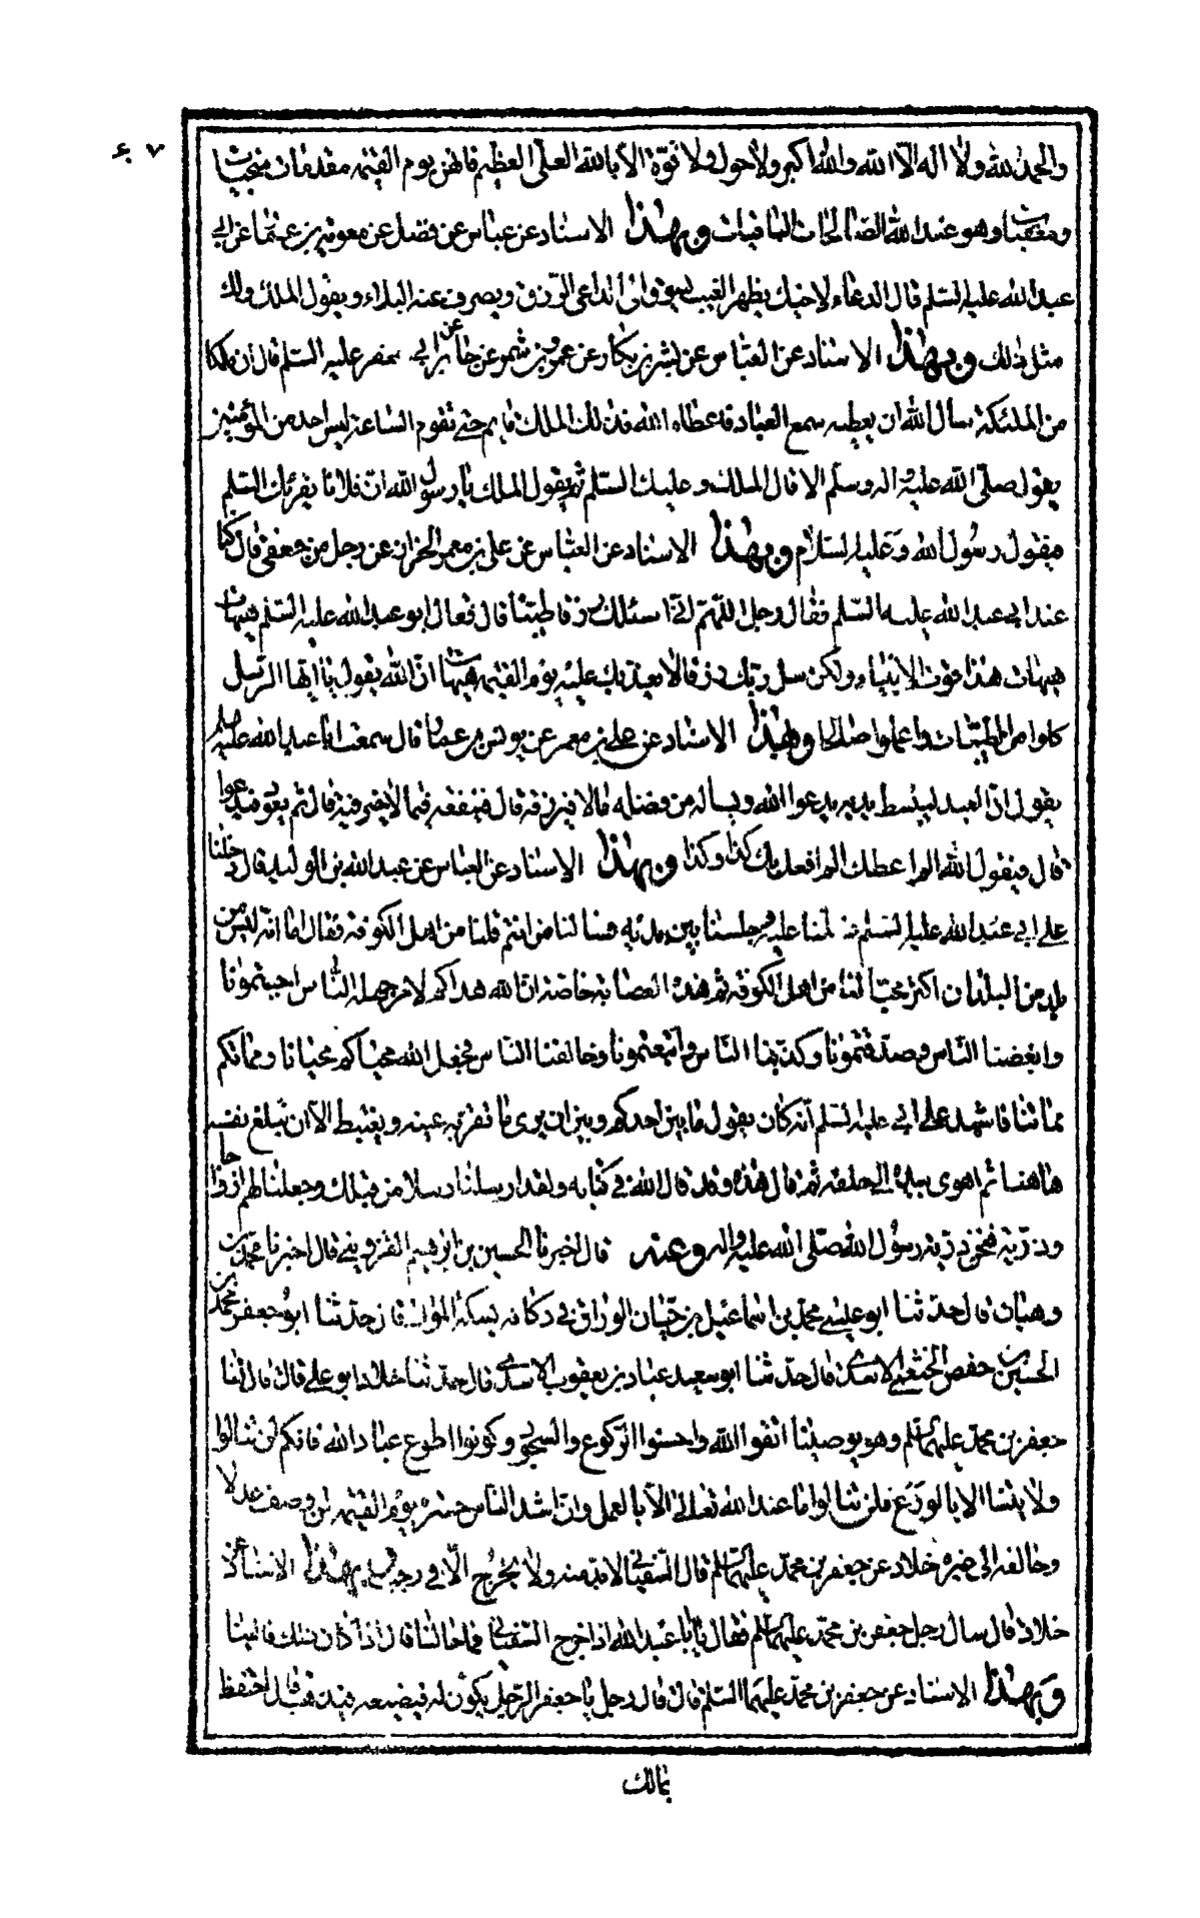 ٤٠٧
والحمد لله ولا اله الا الله والله اكبر ولا حول ولا قوة الا بالله العلي العظيم فانهن يوم القيمة مقدمات منجيات
ومعقبات وهو عند الله الصالحات الباقيات وبهذا الاسناد عن عباس عن فضل عن معوية بن عمار عن ابي
عبد الله عليه السلم قال الدعاء لاخيك بظهر الغيب يسوق الى الداعي الرزق ويصرف عنه البلاء ويقول الملك ولك
مثل ذلك وبهذا الاسناد عن العباس عن بشر بن بكار عن عمرو بن شمر عن جابر عن ابي جعفر عليه السلم قال ان ملكا
من الملئكة سأل الله ان يعطيه سمع العباد فاعطاه الله فذلك الملك قايم حتى تقوم الساعة ليس احد من المؤمنين
يقول صلى الله عليه واله وسلم الا قال الملك وعليك السلم ثم يقول الملك يا رسول الله ان فلانا يقرئك السلم
فيقول رسول الله وعليه السلام وبهذا الاسناد عن العباس عن علي بن معمر الخزاز عن رجل من جعفي قال كنا
عند ابي عبد الله عليه السلم فقال رجل اللهم اني اسئلك رزقا طيبا قال فقال ابو عبد الله عليه السلم هيهات
هيهات هذا قوت الانبياء ولكن سل ربك رزقا لا يعذبك عليه يوم القيمة هيهات ان الله يقول يا ايها الرسل
كلوا من الطيبات واعملوا صالحا وبهذا الاسناد عن علي بن معمر عن يونس بن عمار قال سمعت ابا عبد الله عليه السلم
يقول ان العبد ليبسط يديه يدعوا الله ويساله من فضله مالا فيرزقه قال فينفقه فيما لا خير فيه قال ثم يعود فيدعوا
قال فيقول الله الم اعطك الم افعل بك كذا وكذا وبهذا الاسناد عن العباس عن عبد الله بن الوليد قال دخلنا
على ابي عبد الله عليه السلم فسلمنا عليه وجلسنا بين يديه فسالنا من انتم قلنا من اهل الكوفة فقال اما انه ليس من
بلد من البلدان اكثر محبا لنا من اهل الكوفة ثم هذه العصابة خاصة ان الله هداكم لامر جهله الناس احببتمونا
وابغضنا الناس وصدقتمونا وكذبنا الناس واتبعتمونا وخالفنا الناس فجعل الله محياكم محيانا ومماتكم
مماتنا فاشهد على ابي عليه السلم انه كان يقول ما بين احدكم وبين ان يرى ما تقر به عينه ويغتبط الا ان تبلغ نفسه
هاهنا ثم اهوى بيده الى حلقه ثم قال هذه وقد قال الله في كتابه ولقد ارسلنا رسلا من قبلك وجعلنا لهم ازواجا
وذرية فنحن ذرية رسول الله صلى الله عليه واله وعنه قال اخبرنا الحسين بن ابرهيم القزويني قال اخبرنا محمد بن
وهبان قال حدثنا ابو عيسى محمد بن اسماعيل بن حيان الوراق في دكانه بسكة الموالي قال حدثنا ابو جعفر محمد بن
الحسين بن حفص الخثعمي الاسدي قال حدثنا ابو سعيد عباد بن يعقوب الاسدي قال حدثنا خلاد ابو علي قال قال لنا
جعفر بن محمد عليهما السلم وهو يوصينا اتقوا الله واحسنوا الركوع والسجود وكونوا اطوع عباد الله فانكم لن تنالوا
ولايتنا الا بالورع فلن تنالوا ما عند الله تعالى الا بالعمل وان اشد الناس حسرة يوم القيمة لمن وصف عدلا
وخالفه الى غيره خلاد عن جعفر بن محمد عليهما السلم قال السفياني لا بد منه ولا يخرج الا في رجب وبهذا الاسناد عن
خلاد قال سال رجل جعفر بن محمد عليهما السلم فقال يا ابا عبد الله اذا خرج السفياني فما حالنا قال اذا كان ذلك فالينا
وبهذا الاسناد عن جعفر بن محمد عليهما السلم قال قال رجل يا جعفر الرجل يكون له فيضيعه فيذهب قال احتفظ
بمالك